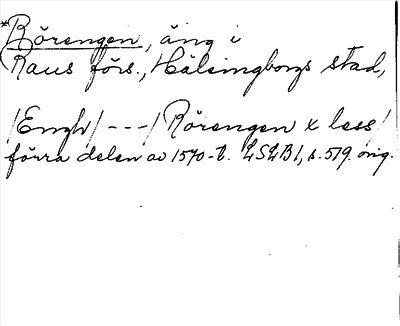 *Rörengen, äng i
Raus förs., Hälsingborgs stad,
/Engh/ - - -/ Rörengen x less/
förra delen av 1570-t. LSLB1, s. 519. orig.